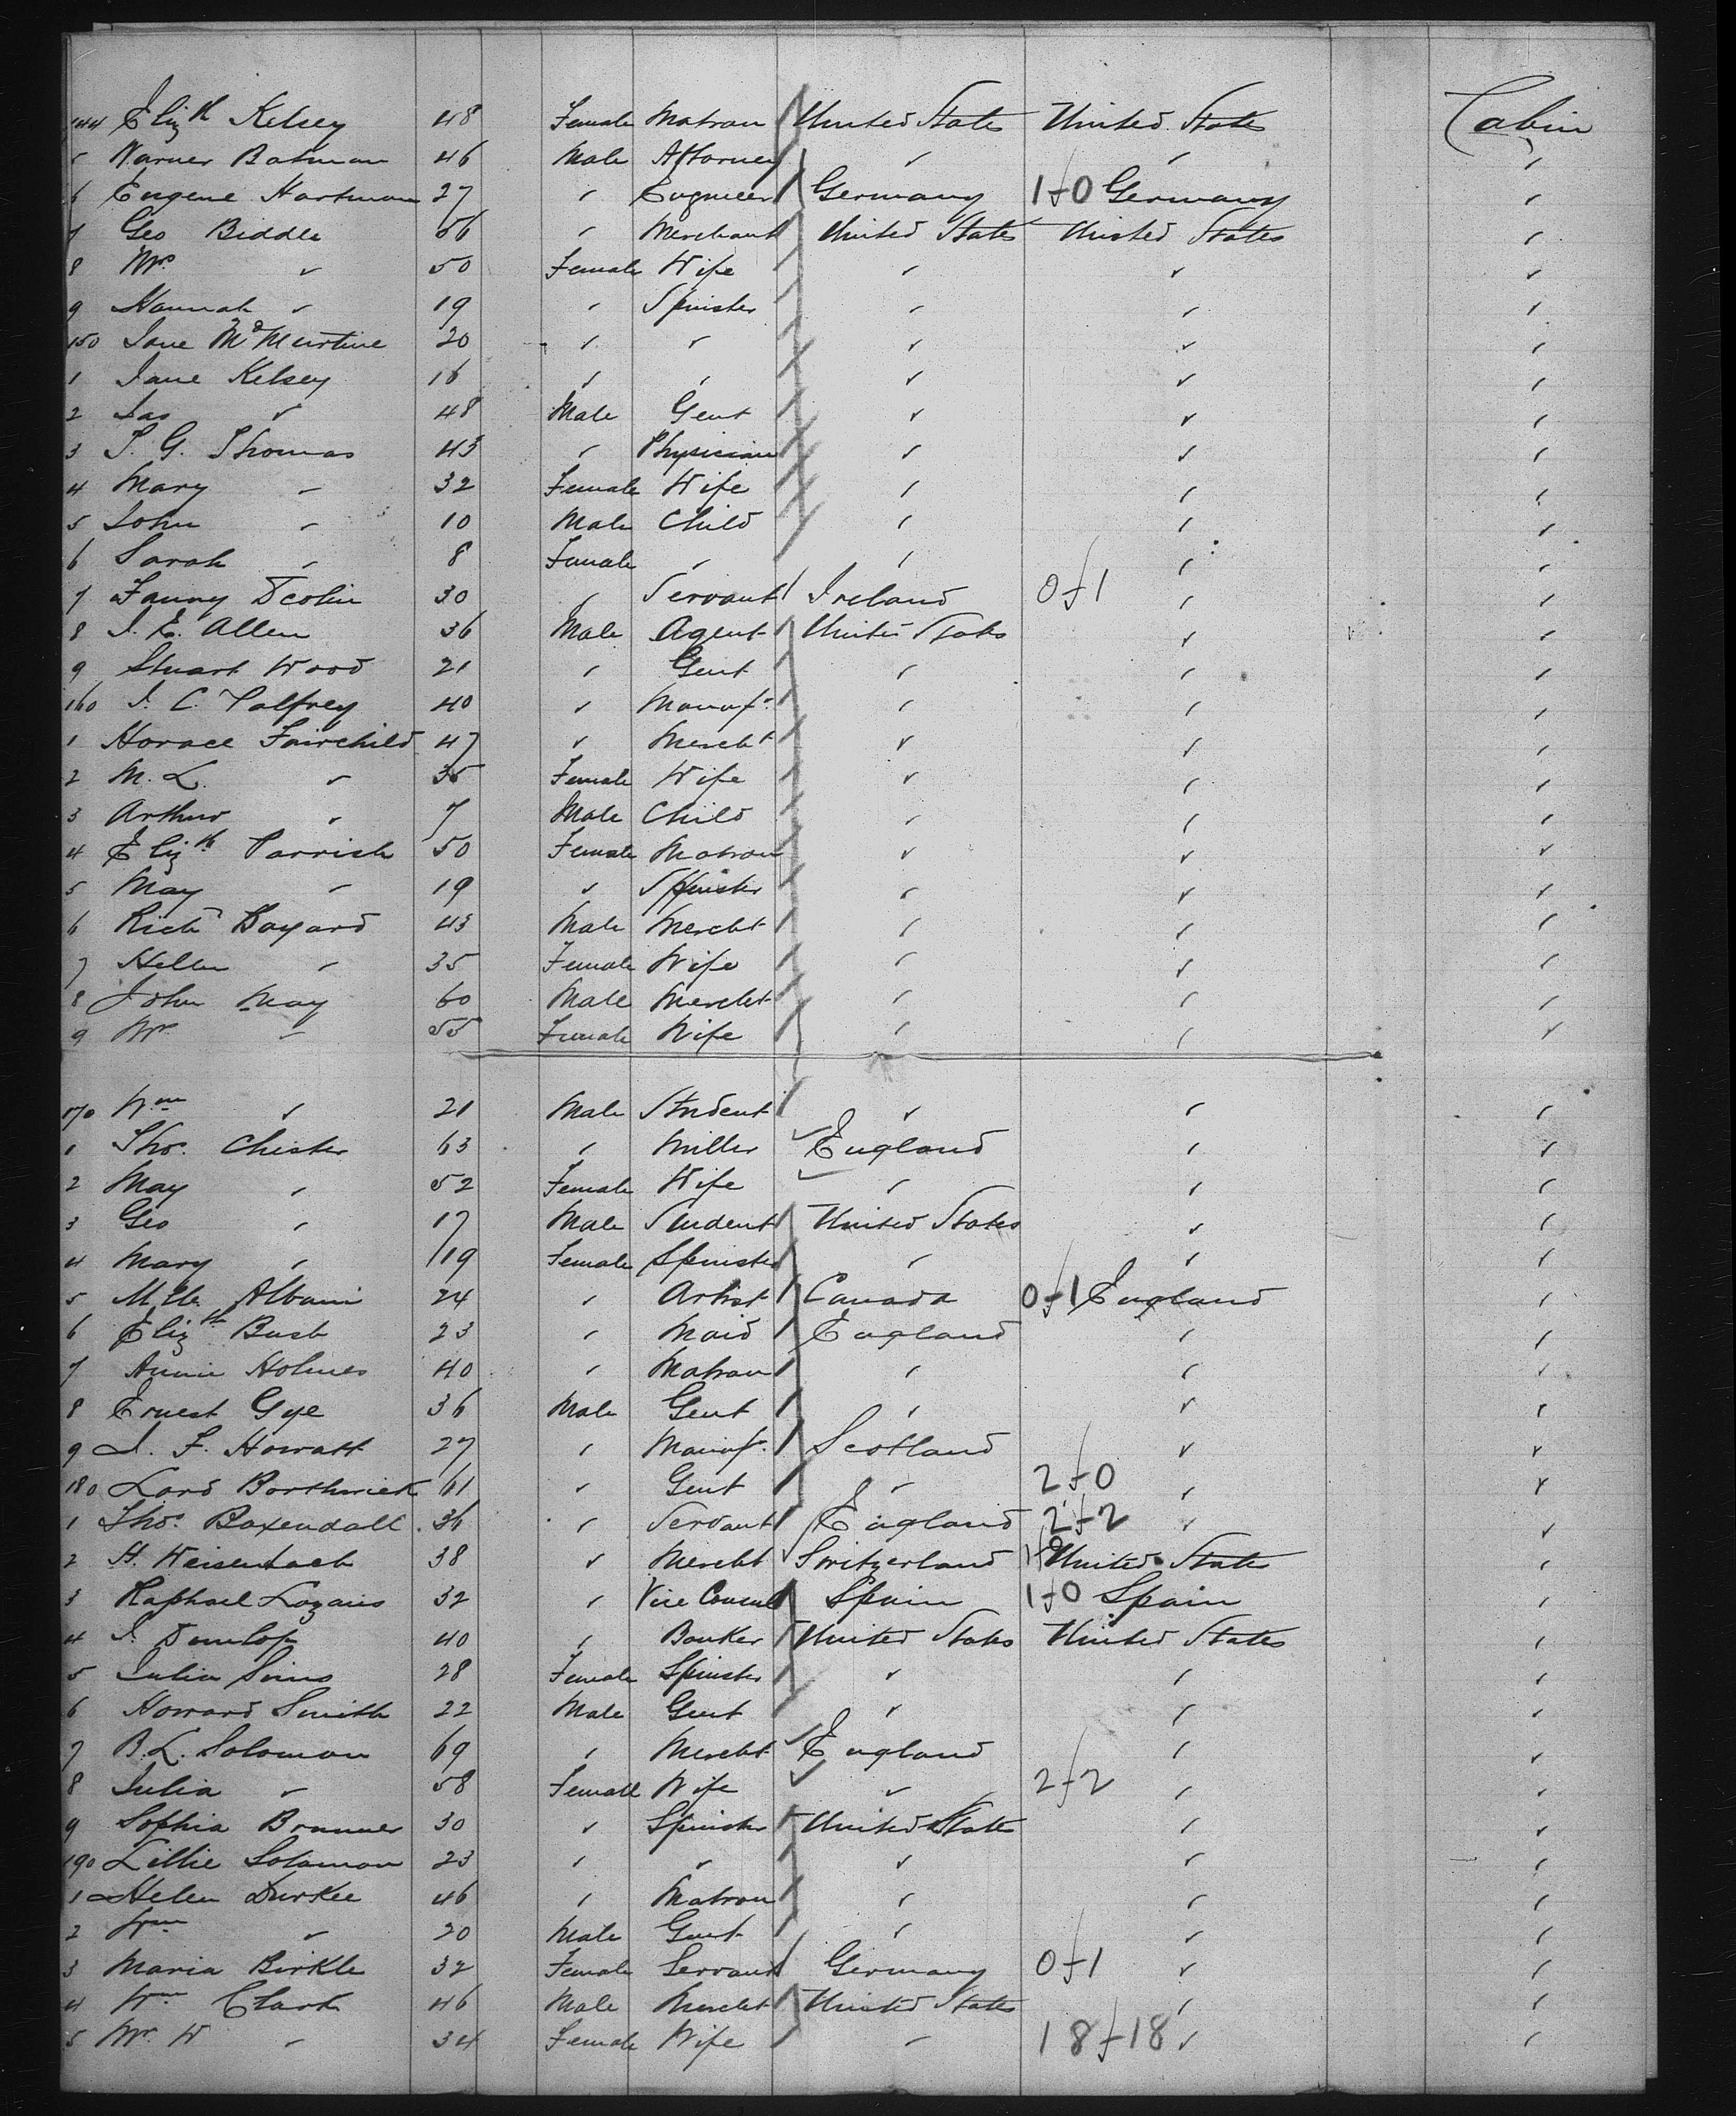 144 Elizth Kelsey 48 Female Matron United States United States Cabin
5 Warner Batman 46 Male Attorney " " "
6 Eugene Hartman 27 " Engineer Germany 1-0 Germany "
7 Geo Biddle 56 " Merchant United States United States "
8 Mrs " 50 Female Wife " " "
9 Hannah " 19 " Spinster " " "
150 Jane McMurtine 20 " " " " "
1 Jane Kelsey 16 " " " " "
2 Jas " 48 Male Gent " " "
3 T. G. Thomas 43 " Physician " " "
4 Mary " 32 Female Wife " " "
5 John " 10 Male Child " " "
6 Sarah " 8 Female " " " "
7 Fanny 30 " Servant Ireland 0-1 " "
8 J. E. Allen 36 Male Agent United States " "
9 Stuart Wood 21 " Gent " " "
160 J. C. Palfrey 40 " Manufr " " "
1 Horace Fairchild 47 " Mercht " " "
2 M. L. " 35 Female Wife " " "
3 Arthur " 7 Male Child " " "
4 Elizth Parrish 50 Female Matron " " "
5 May " 19 " Spinster " " "
6 Richd Bayard 43 Male Mercht " " "
7 Hellen " 35 Female Wife " " "
8 John May 60 Male Mercht " " "
9 Mrs " 55 Female Wife " " "
170 Wm " 21 Male Student " " "
1 Thos. Chester 63 " Miller England " "
2 May " 52 Female Wife " " "
3 Geo " 17 Male Student United States " "
4 Mary " 19 Female Spinster " " "
5 Mlle Albani 24 " Artist Canada 0-1 England "
6 Elizth Bush 23 " Maid England " "
7 Annie Holmes 40 " Matron " " "
8 Ernest Gye 36 Male Gent " " "
9 J. F. Howatt 27 " Manufr. Scotland " "
180 Lord Borthwick 61 " Gent " 2-0 " "
1 Thos. Baxendall 36 " Servant England 2-2 " "
2 H. Weisenbach 38 " Mercht Switzerland United States "
3 Raphael Lozano 32 " Vice Consul Spain 1-0 Spain "
4 J. Dunlop 40 " Banker United States United States "
5 Julia Sims 28 Female Spinster " " "
6 Howard Smith 22 Male Gent " " "
7 B. L. Solomon 69 " Mercht England " "
8 Julia " 58 Female Wife " 2-2 " "
9 Sophia Brunner 30 " Spinster United States " "
190 Lillie Solomon 23 " " " " "
1 Helen Durkee 46 " Matron " " "
2 Wm " 20 Male Gent " " "
3 Maria Birkle 32 Female Servant Germany 0-1 " "
4 Wm Clark 46 Male Mercht United States " "
5 Mrs W " 34 Female Wife " 18-18 " "